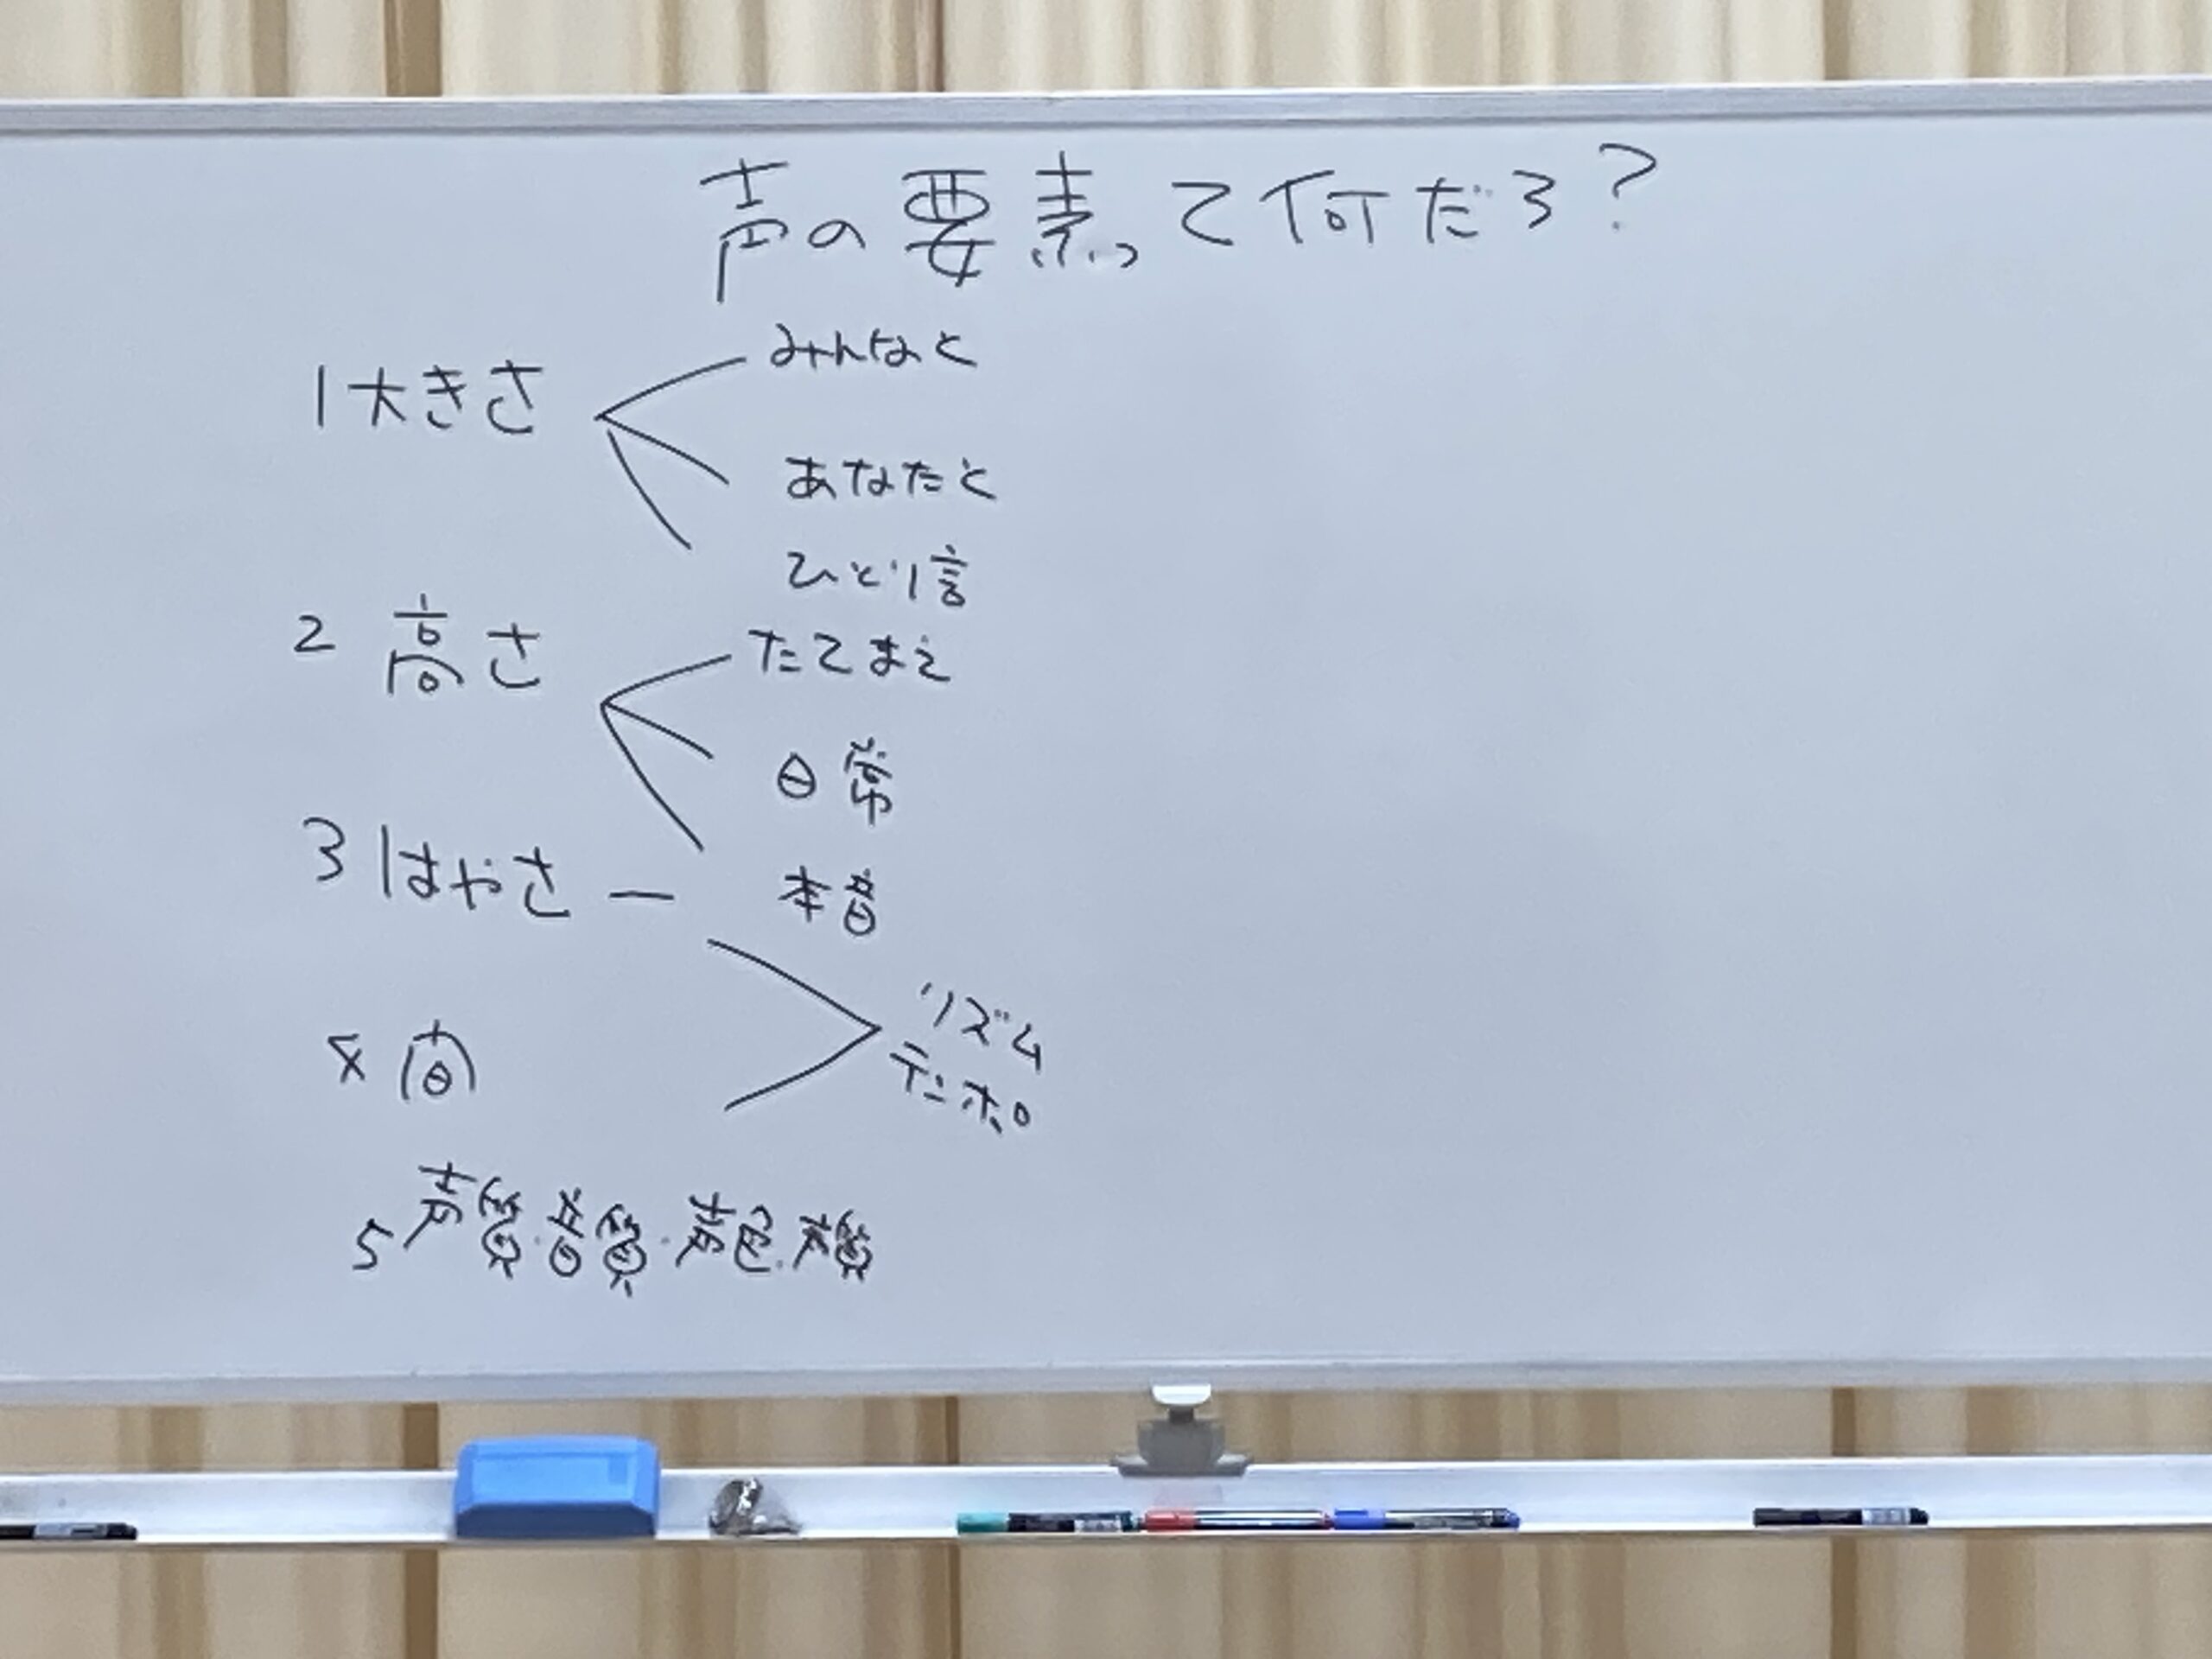 声の要素って何だろ?
1 大きさ
みんなと
あなたと
ひとり言
2 高さ
たてまえ
日常
本音
3 はやさ
リズム
テンポ
4 間
5 声質・音質・声色・声質